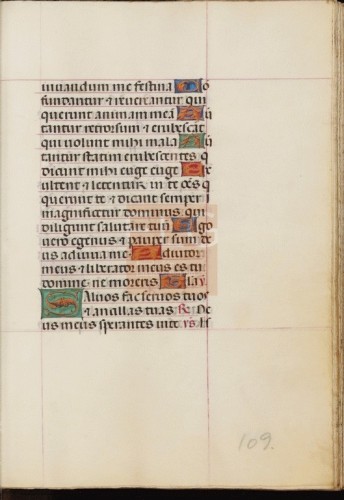 iuuandum me festina Co
fundantur ⁊ reuereantur qui
querunt animam meā Auer
tantur retrorsum ⁊ erubescāt
qui uolunt mihi mala Auer
tantur statim erubescentes q
dicunt mihi euge euge Ex
ultent ⁊ letentur in te oēs q
querunt te ⁊ dicant semper
magnificetur dominus qui
diligunt salutare tuū Ego
uero egenus ⁊ pauper sum de
us adiuua me Adiutor
meus ⁊ liberator meus es tu
domine ne moreris Glā
Saluos fac seruos tuos
⁊ ancillas tuas De
us meus sperantes in te
109.